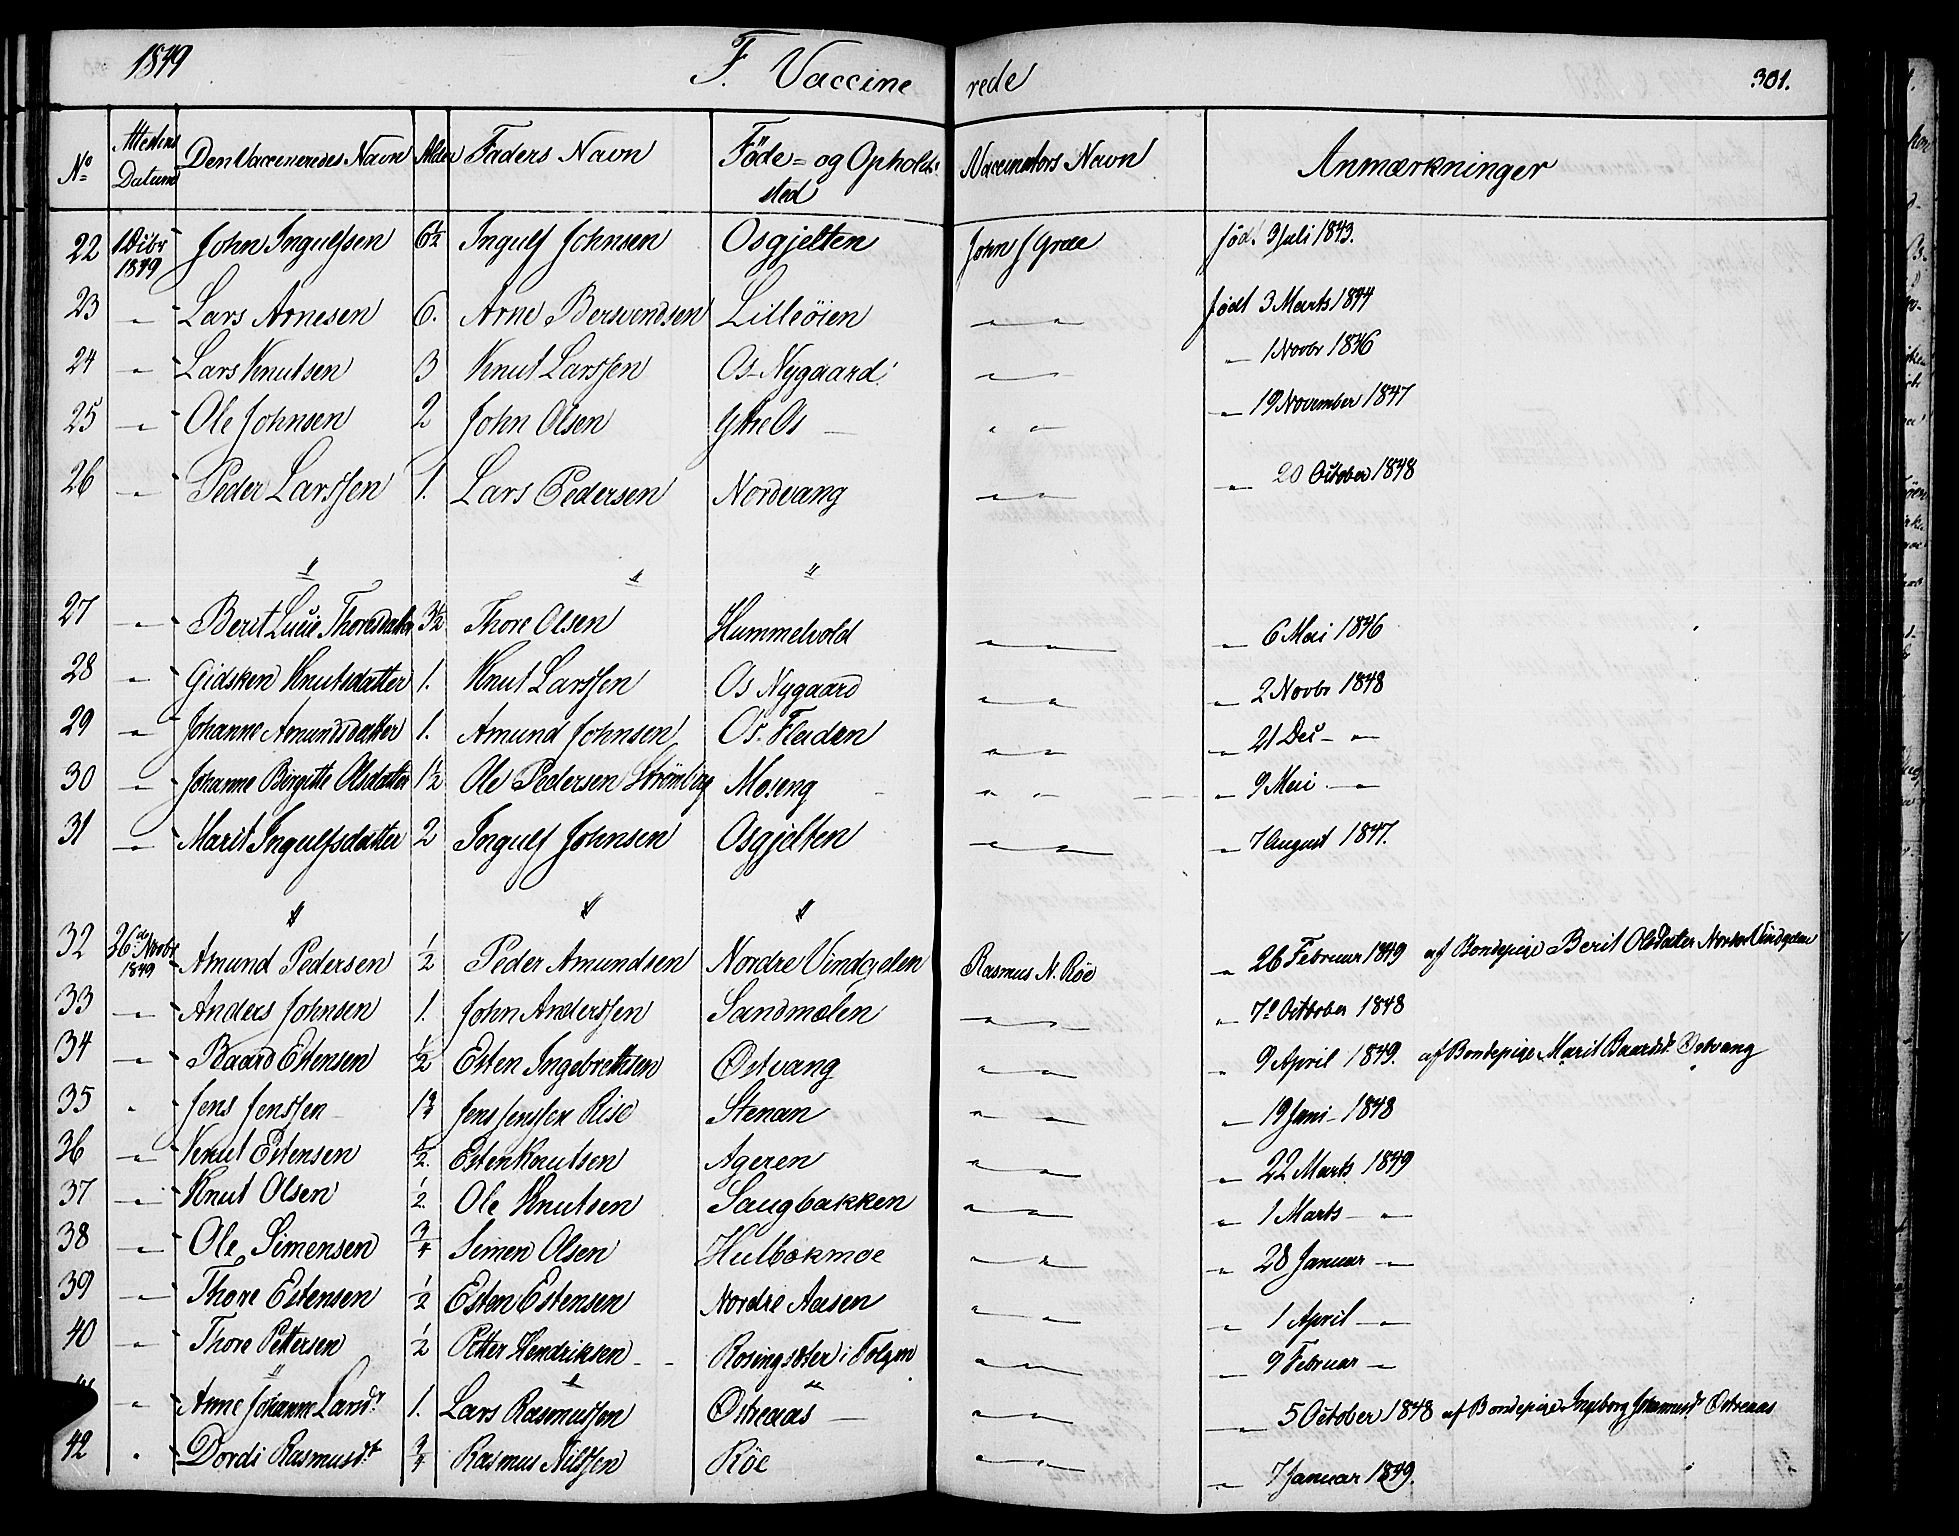 1849 F. Vaccine rede 301.
No Attestens Datum Den Vaccineredes Navn Alder Faders Navn Føde- og Opholds- sted Vaccinators Navn Anmærkninger
22 1 Dcbr 1849 John Ingulfsen 6½ Ingulf Johnsen Osgjelten John J Grae fød. 3 Juli 1843.
23 " Lars Arnesen 6. Arne Bersvendsen Lilleöien " " født 3 Marts 1844
24 " Lars Knutsen 3 Knut Larssen Os-Nygaard " " " 1 Novbr 1846
25 " Ole Johnsen 2 John Olsen Ytre Os " " " 19 November 1847
26 " Peder Larssen 1. Lars Pedersen Nordvang " " " 20 October 1848
" " "
27 " Berit Lucie Thoresdatter 3½ Thore Olsen Hummelvold " " " 6 Mai 1846
28 " Gidsken Knutsdatter 1. Knut Larssen Os Nygaard " " " 2 Novbr 1848
29 " Johanne Amundsdatter 1. Amund Johnsen Os. Floden " " " 21 Dec "
30 " Johanne Birgitte Olsdatter 1½ Ole Pedersen Moseng " " " 9 Mai "
31 " Marit Ingulfsdatter 2 Ingulf Johnsen Osgjelten " " " 7 August 1847.
" " "
32 26de Novbr 1849 Amund Pedersen ½ Peder Amundsen Nordre Vindgelen Rasmus N. Röe " 26 Februar 1849 af Bondepige Berit Olsdatter Nordre Vindgelen
33 " Anders Johnsen 1. John Anderssen Sandmælen " " " 7de October 1848
34 " Baard Estensen ½ Esten Ingebrethsen Østvang " " " 9 April 1849. af Bondepige Marit Baardsdr Østvang
35 " Jens Jenssen Jens Jenssen Rise Stenan " " " 19 Juni 1848
36 " Knut Estensen ½. Esten Knutsen Ageren " " " 22 Marts 1849
37 " Knut Olsen ½. Ole Knutsen Saugbakken " " " 1 Marts "
38 " Ole Simensen ¾ Simen Olsen Hulbækmoe " " " 28 Januar "
39 " Thore Estensen ½ Esten Estensen Nordre Aasen " " " 1 April "
40 " Thore Pettersen ½ Petter Hendriksen Tolgen " " " 9 Februar "
" " "
" Anne Johanne Larsdr 1. Lars Rasmussen Østeraas " " " 5 October 1848 af Bondepige Ingeborg Østeraas
42 " Dordi Rasmusdr ¾ Rasmus Nilssen Röe " " " 7 Januar 1849.